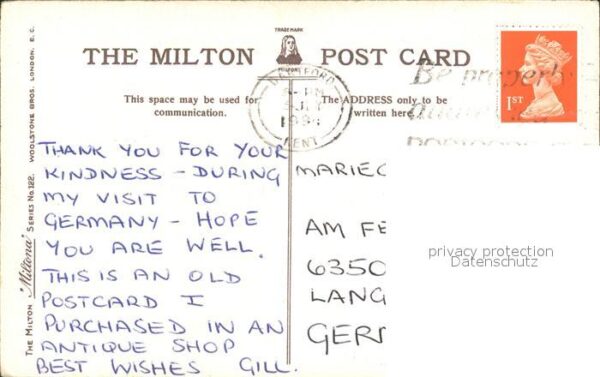 TRADE MARK
THE MILTON POST CARD
MILTON
This space may be used for communication.
The ADDRESS only to be written here
DARTFORD
KENT
Be properly
1ST
THANK YOU FOR YOUR
KINDNESS - DURING
MY VISIT TO
GERMANY - HOPE
YOU ARE WELL.
THIS IS AN OLD
POSTCARD I
PURCHASED IN AN
ANTIQUE SHOP
BEST WISHES GILL.
AM FE
6350
LANG
GER
privacy protection
Datenschutz
THE MILTON "Miltona" SERIES No. 122. WOOLSTONE BROS. LONDON. E.C.